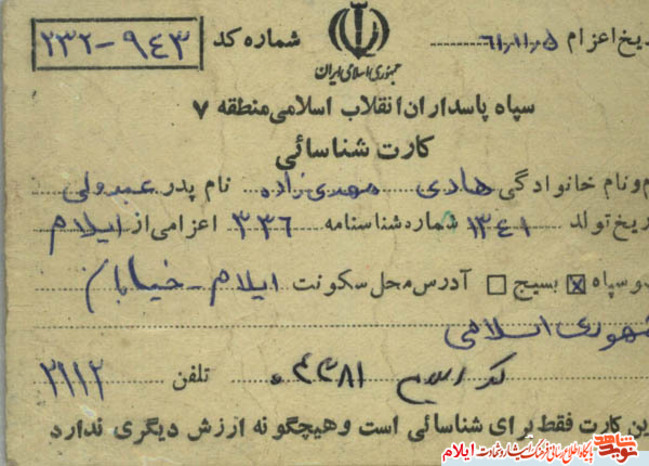 ریخ اعزام ۶۱/۱۱/۵ شماره کد ۲۳۲-۹۴۳
جمهوری اسلامی ایران
سپاه پاسداران انقلاب اسلامی منطقه ۷
کارت شناسائی
م و نام خانوادگی هادی مهدی زاده نام پدر عبدولی
ریخ تولد ۱۳۴۱ شماره شناسنامه ۳۳۶ اعزامی از ایلام
و سپاه ☒ بسیج ☐ آدرس محل سکونت ایلام - خیابان
مهوری اسلامی
تلفن ۳۱۱۲
ین کارت فقط برای شناسائی است و هیچگونه ارزش دیگری ندارد
نوید شاهد پایگاه اطلاع رسانی فرهنگ ایثار و شهادت ایلام